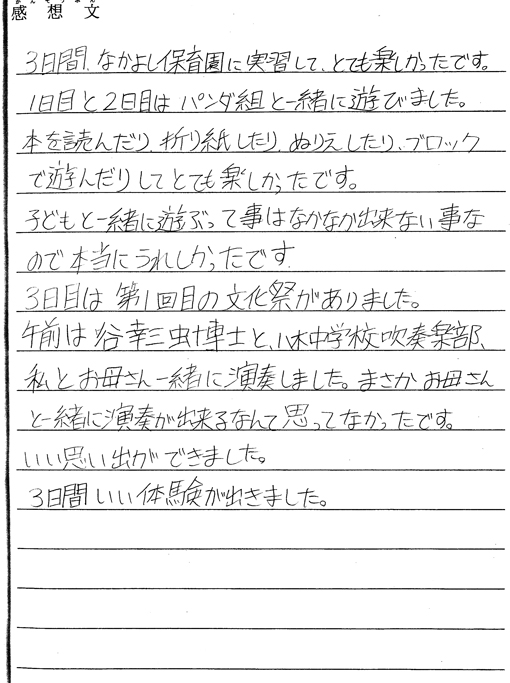 感想文
3日間、なかよし保育園に実習して、とても楽しかったです。
1日目と2日目はパンダ組と一緒に遊びました。
本を読んだり、折り紙したり、ぬりえしたり、ブロック
で遊んだりしてとても楽しかったです。
子どもと一緒に遊ぶって事はなかなか出来ない事な
ので本当にうれしかったです
3日目は第1回目の文化祭がありました。
午前は谷幸三虫博士と、八木中学校吹奏楽部、
私とお母さん一緒に演奏しました。まさかお母さん
と一緒に演奏が出来るなんて思ってなかったです。
いい思い出ができました。
3日間いい体験が出きました。